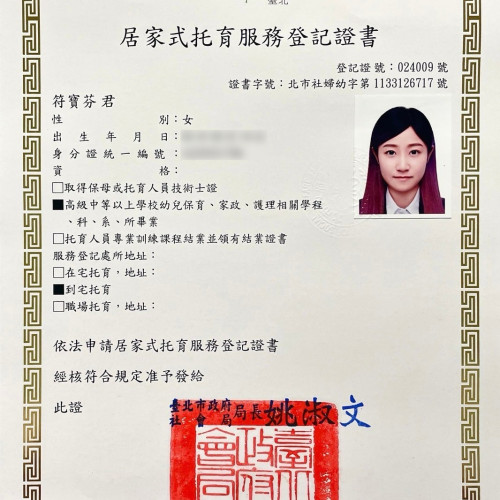 臺北
居家式托育服務登記證書
登記證號：024009號
證書字號：北市社婦幼字第1133126717號
符寶芬君
性別：女
出生年月日：
身分證統一編號：
資格：
□取得保母或托育人員技術士證
■高級中等以上學校幼兒保育、家政、護理相關學程
、科、系、所畢業
□托育人員專業訓練課程結業並領有結業證書
服務登記處所地址：
□在宅托育，地址：
■到宅托育
□職場托育，地址：
依法申請居家式托育服務登記證書
經核符合規定准予發給
此證
臺北市政府
社會局局長姚淑文